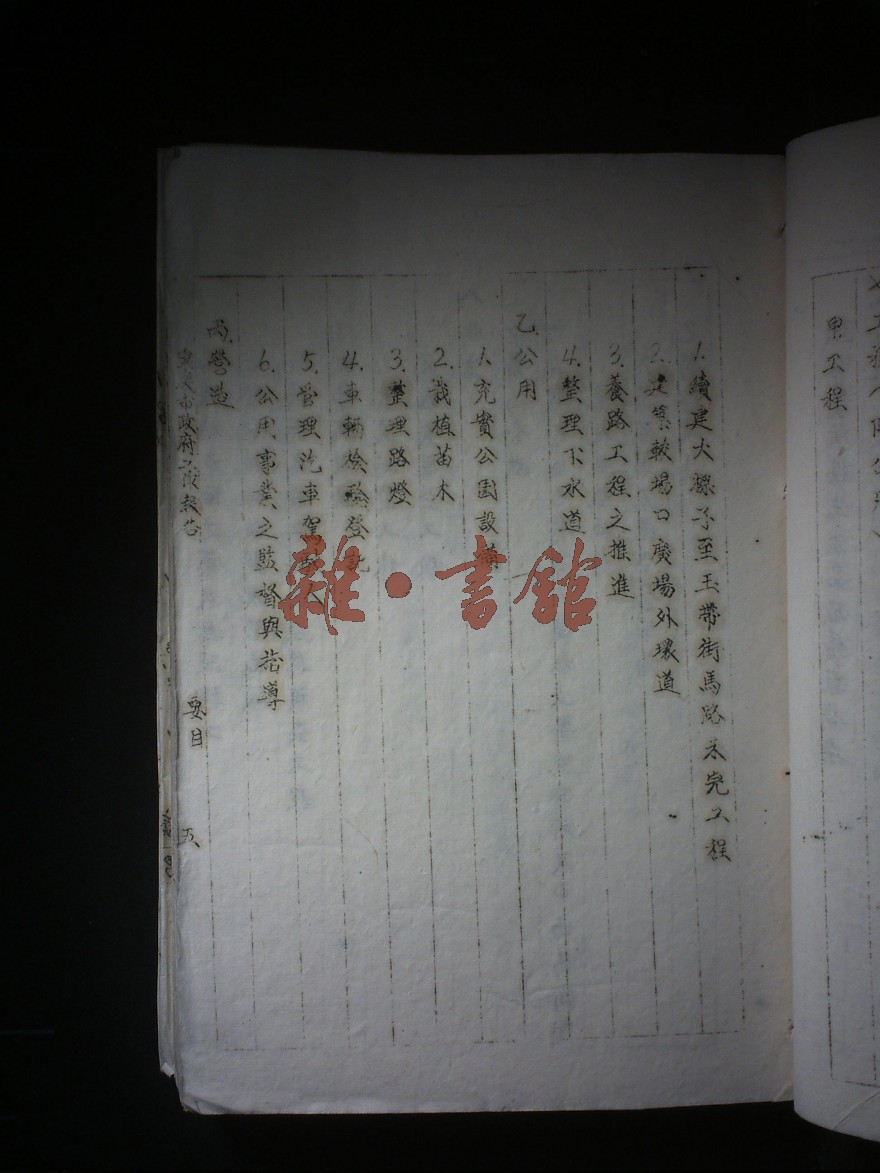 甲、工程
1.續建大樑子至玉帶街馬路未完工程
2.較場口廣場外環道
3.養路工程之推進
4.整理下水道
乙、公用
1.充實公園設備
2.栽植苗木
3.整理路燈
4.車輛檢驗登記
5.管理汽車駕人
6.公用事業之監督與指導
丙、營造
市政府工作報告 要目 五
雜·書館